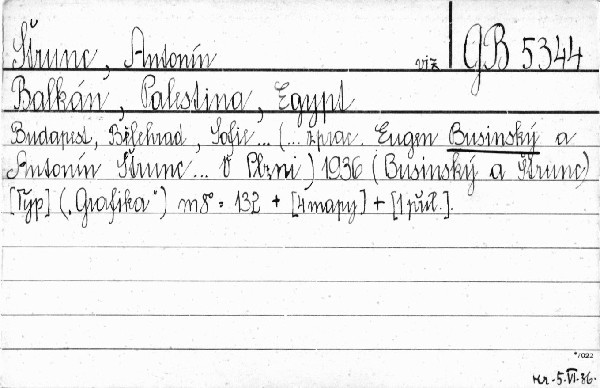 Štrunc, Antonín viz GB 5344
Balkán, Palestina, Egypt
Budapest, Bělehrad, Sofie... (... zprac. Eugen Businský a
Antonín Štrunc... V Plzni) 1936 (Businský a Štrunc)
[Typ] („Grafika“) m8° 132 + [4 mapy] + [1 příl.].
*/022
Hr. 5.VI.86.